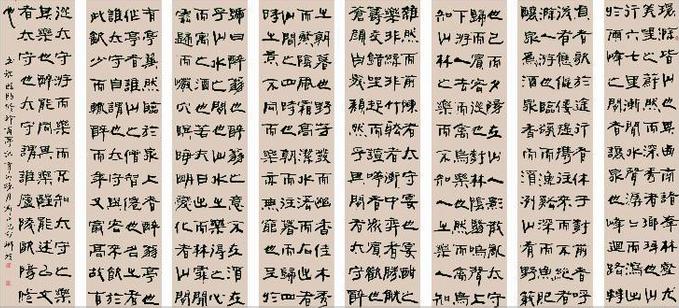 環滁皆山也其西南諸峰林壑尤
美望之蔚然而深秀者琅琊也山
行六七里漸聞水聲潺潺而瀉出
于兩峰之間者釀泉也峰回路轉
負者歌于途行者休于樹前者呼
後者應傴僂提攜往來而不絕者
滁人游也臨溪而漁溪深而魚肥
釀泉為酒泉香而酒洌山肴野蔌
也已而夕陽在山人影散亂太守
歸而賓客從也樹林陰翳鳴聲上
下游人去而禽鳥樂也然而禽鳥
知山林之樂而不知人之樂人知
雜然而前陳者太守宴也宴酣之
樂非絲非竹射者中弈者勝觥籌
交錯起坐而喧嘩者眾賓歡也
蒼顏白髮頹然乎其間者太守醉
之朝暮也野芳發而幽香佳木秀
而繁陰風霜高潔水落而石出者
山間之四時也朝而往暮而歸四
時之景不同而樂亦無窮也至于
號曰醉翁也醉翁之意不在酒在
乎山水之間也山水之樂得之心
而寓之酒也若夫日出而林霏開
雲歸而巖穴暝晦明變化者山間
有亭翼然臨于泉上者醉翁亭也
作亭者誰山之僧智仙也名之者
誰太守自謂也太守與客來飲于
此飲少輒醉而年又最高故自
從太守游而樂而不知太守之樂
其樂也醉能同其樂醒能述以文
者太守也太守謂誰廬陵歐陽修
也